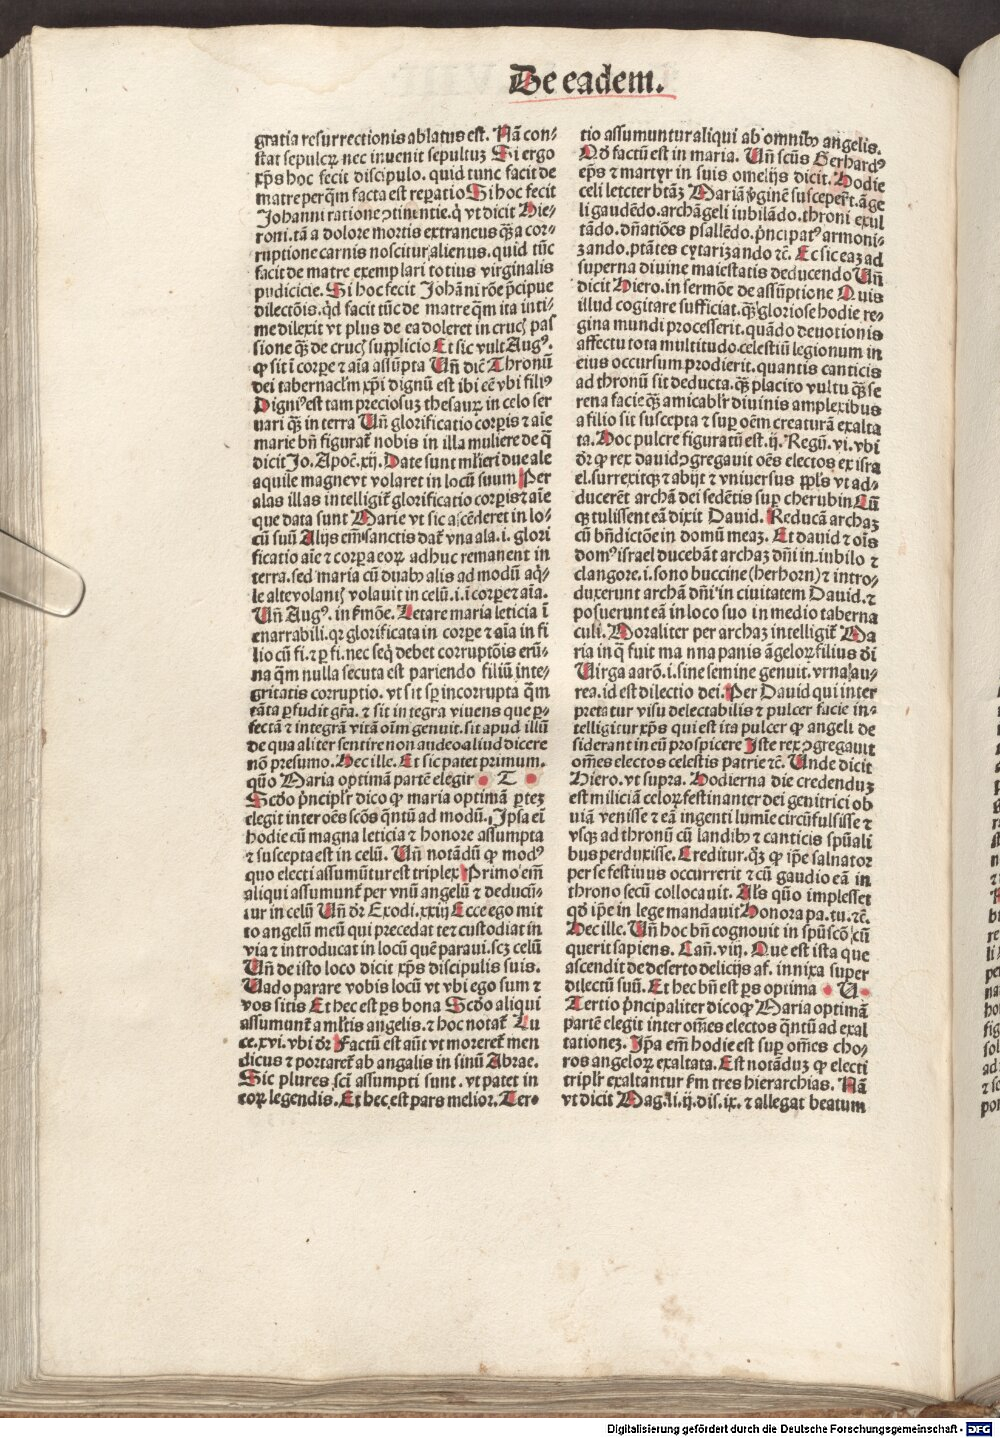 De eadem.
gratia resurrectionis ablatus est. Nā con-
stat sepulcrꝫ nec inuenit sepultuꝫ Si ergo
xp̄s hoc fecit discipulo. quid tunc facit de
matre per qm̄ facta est reꝑatio Si hoc fecit
Johanni ratione ↄtinēntie. q̇ vt dicit Hie-
roni. tā a dolore mortis extraneus qꝫ̄ a cor-
ruptione carnis noscitur, alienus. quid tūc
facit de matre exemplari totius virginalis
pudicicie. Si hoc fecit Johāni rōe p̄cipue
dilectōis. qd̓ facit tūc de matre qm̄ ita inti-
me dilexit vt plus de ea doleret in cruc̄ pas
sione qꝫ̄ de cruc̄ supplicio Et sic vult Augꝰ.
ꝙ sit ī corꝑe ⁊ aīa assūpta Vn̄ diē Thronū
dei tabernacl'm xp̄i dignū est ibi eē vbi filiꝰ
Digniꝰ est tam preciosuꝫ thesaurꝫ in celo ser
uari qꝫ̄ in terra Vn̄ glorificatio corꝑis ⁊ aīe
marie bn̄ figurat̄ nobis in illa muliere de q̄
dicit Jo. Apoc̄. xij. Date sunt ml'ieri due ale
aquile magne vt volaret in locū suum Per
alas illas intelligit̄ glorificatio corꝑis ⁊ aīe
que data sunt Marie vt sic ascēderet in lo-
cū suū Alijs em̄ sanctis dat̄ vna ala. i. glori
ficatio aīe ⁊ corꝑa eoꝝ adhuc remanent in
terra. sed maria cū duabꝰ alis ad modū aq̇-
le alte volant̄ volauit in celū. i. ī corꝑe ⁊ aīa.
Vn̄ Augꝰ. in ẜmōe. Letare maria leticia ī
enarrabili. qꝛ glorificata in corꝑe ⁊ aīa in fi
lio cū fi. ⁊ ꝑ fi. nec seq̇ debet corruptōis erū-
na qm̄ nulla secuta est pariendo filiū inte-
gritatis corruptio. vt sit sꝑ incorrupta qm̄
tāta ꝑfudit gr̄a. ⁊ sit integra viuens que ꝑ-
fectā ⁊ integrā vitā oīm genuit. sit apud illū
de qua aliter sentire non audeo aliud dicere
nō presumo. Hec ille. Et sic patet primum.
quō Maria optimā partē elegit • T •
Scd̓o p̄ncipl'r dico ꝙ maria optimā ꝑteꝫ
elegit inter oēs scōs qn̄tū ad modū. Ipsa eī
hodie cū magna leticia ⁊ honore assumpta
⁊ suscepta est in celū. Vn̄ notādū ꝙ modꝰ
quo electi assumūtur est triplex Primo em̄
aliqui assumunt̄ per vnū angelū ⁊ deducū-
tur in celū Vn̄ dr̄ Exodi. xxiij Ecce ego mit
to angelū meū qui precedat te ⁊ custodiat in
via ⁊ introducat in locū quē paraui. scꝫ celū
Vn̄ de isto loco dicit xp̄s discipulis suis.
Vado parare vobis locū vt vbi ego sum ⁊
vos sitis Et hec est ꝑs bona Scd̓o aliqui
assumunt̄ a ml'tis angelis. ⁊ hoc notat̄ Lu
ce. xvi. vbi dr̄ Factū est aūt vt moreret̄ men
dicus ⁊ portaret̄ ab angalis in sinū Abrae.
Sic plures sc̄i assumpti sunt. vt patet in
eoꝝ legendis. Et hec est pars melior. Ter-
tio assumuntur aliqui ab omnibꝰ angelis.
Qd̓ factū est in maria. Vn̄ scūs Gerhardꝰ
ep̄s ⁊ martyr in suis omelijs dicit. Hodie
celi letcter btāꝫ Mariā v̓ginē susceper̄t. āge
li gaudēdo. archāgeli iubilādo. throni exul
tādo. dn̄atiōes psallēdo. p̄ncipatꝰ armoni-
zando. ptātes cytarizando ⁊c̄. Et sic eaꝫ ad
superna diuine maiestatis deducendo Vn̄
dicit Hiero. in sermōe de assūptione Quis
illud cogitare sufficiat. qꝫ̄ gloriose hodie re-
gina mundi processerit. quādo deuotionis
affectu tota multitudo celestiū legionum in
eius occursum prodierit. quantis canticis
ad thronū sit deducta. qꝫ̄ placito vultu qꝫ̄ se
rena facie qꝫ̄ amicabl'r diuinis amplexibus
a filio sit suscepta ⁊ suꝑ oēm creaturā exalta
ta. Hoc pulcre figuratū est. ij. Regū. vi. vbi
dr̄ ꝙ rex dauid ↄgregauit oēs electos ex isra
el. surrexitqꝫ ⁊ abijt ⁊ vniuersus ppl's vt ad-
ducerēt archā dei sedētis suꝑ cherubin Cū
qꝫ tulissent eā dixit Dauid. Reducā archaꝫ
cū bn̄dictōe in domū meaꝫ. Et dauid ⁊ oīs
domꝰ israel ducebāt archaꝫ dn̄i in. iubilo ⁊
clangore. i. sono buccine (herhorn) ⁊ intro-
duxerunt archā dn̄i in ciuitatem Dauid. ⁊
posuerunt eā in loco suo in medio taberna
culi. Moraliter per archaꝫ intelligit̄ Ma
ria in q̄ fuit manna panis āgeloꝝ filius dī
Virga aarō. i. sine semine genuit. vrna au-
rea. id est dilectio dei. Per Dauid qui inter
pretatur visu delectabilis ⁊ pulcer facie in-
telligitur xp̄s qui est ita pulcer ꝙ angeli de
siderant in eū prospicere Iste rex ↄgregauit
om̄es electos celestis patrie ⁊c̄. Vnde dicit
Hiero. vt supra. Hodierna die credenduꝫ
est miliciā celoꝝ festinanter dei genitrici ob
uiā venisse ⁊ eā ingenti lumīe circūfulsisse ⁊
vsqꝫ ad thronū cū landibꝰ ⁊ canticis spūali
bus perduxisse. Creditur. qꝫ ꝙ ip̄e saluator
per se festiuus occurrerit ⁊ cū gaudio eā in
throno secū collocauit. Al's quō implesset
qd̓ ip̄e in lege mandauit Honora pa. tu. ⁊c̄.
Hec ille. Vn̄ hoc bn̄ cognouit in spūscō, cū
querit sapiens. Can̄. viij. Que est ista que
ascendit de deserto delicijs af. innixa super
dilectū suū. Et hec bn̄ est ꝑs optima • V •
Tertio p̄ncipaliter dico ꝙ Maria optimā
partē elegit inter om̄es electos qn̄tū ad exal
tationeꝫ. Ip̄a em̄ hodie est suꝑ om̄es cho-
ros angeloꝝ exaltata. Est notāduꝫ ꝙ electi
tripl'r exaltantur ẜm tres hierarchias. Nā
vt dicit Mag. li. ij. dis. ix. ⁊ allegat beatum
Digitalisierung gefördert durch die Deutsche Forschungsgemeinschaft - DFG